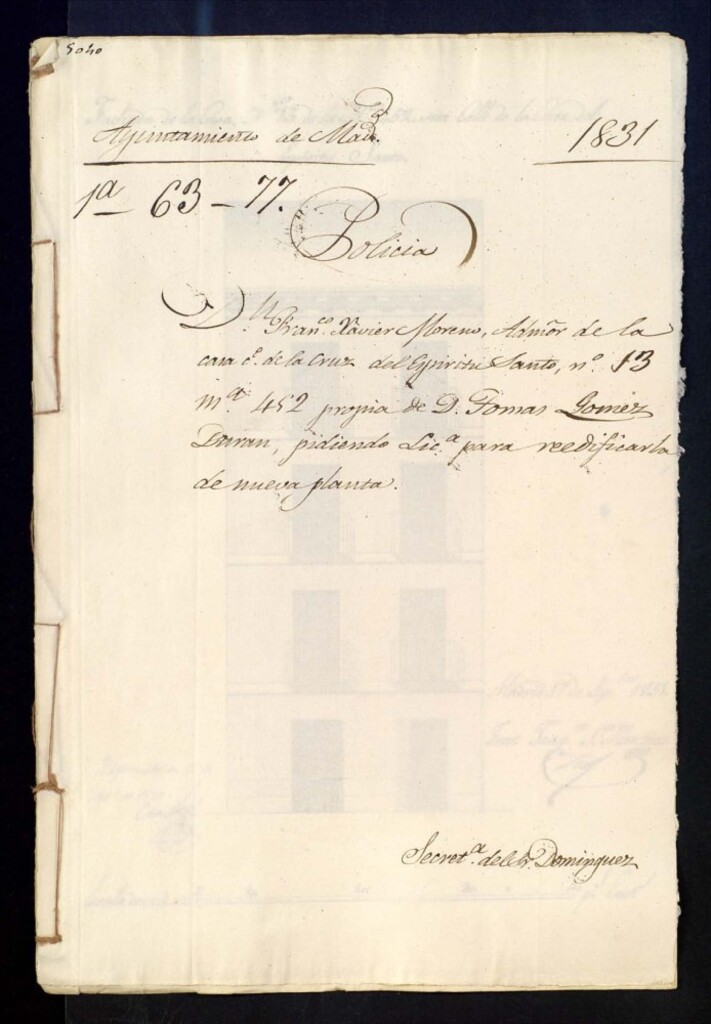 5040
Ayuntamiento de Mad.d
1831
1a 63-77.
Policia
D.n Fran.co Xavier Moreno, Admōr de la
casa c.e de la Cruz del Espiritu Santo, n.o 13
m.a 452 propia de D. Tomas Gomez
Duran, pidiendo Lic.a para reedificarla
de nueva planta.
Secret.a del Sr. Dominguez